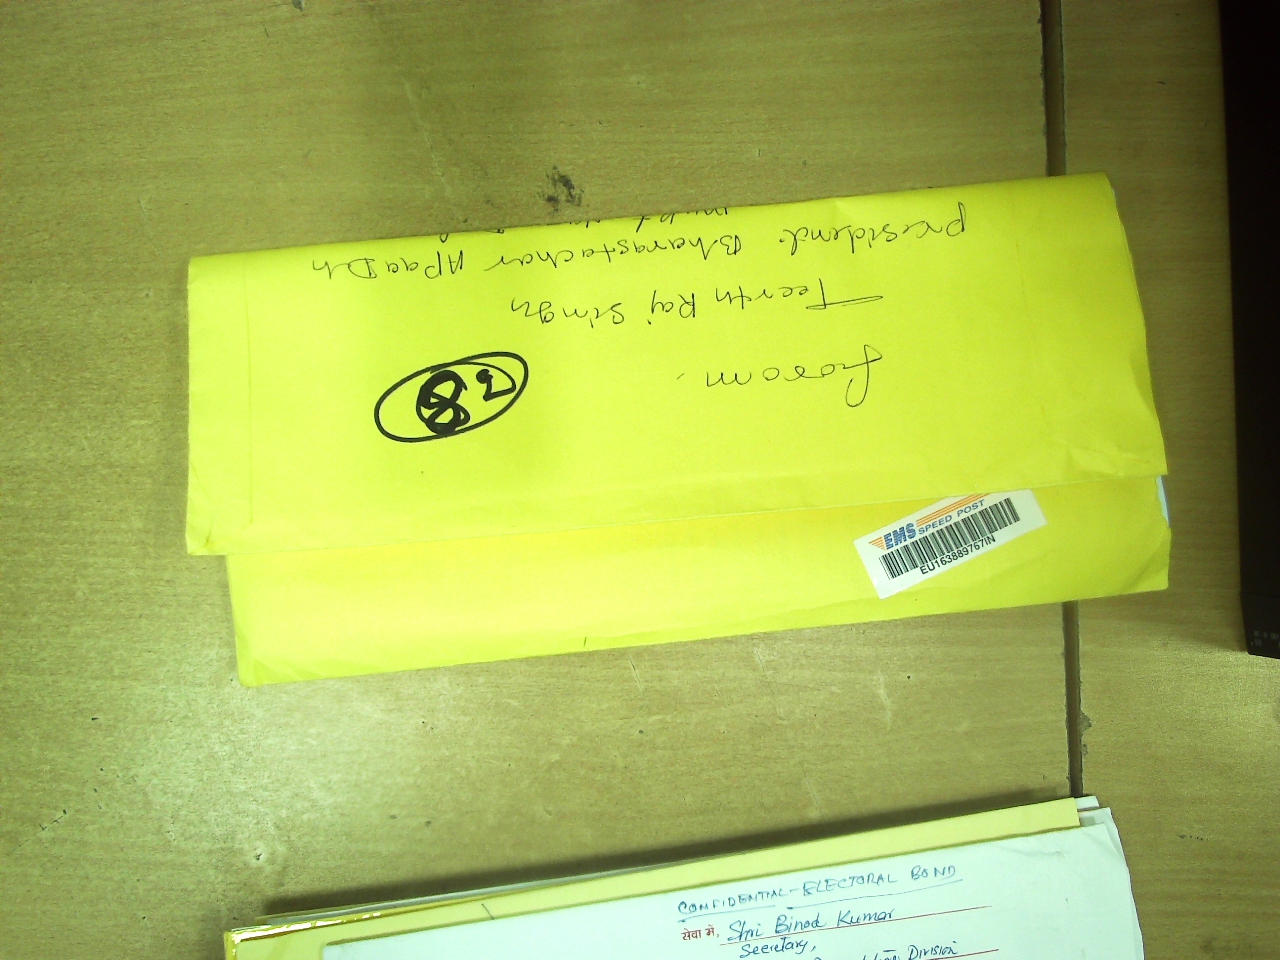 From
Teerth Raj Singh
president. Bharastachar APaaDh
82
EMS SPEED POST
EU163889767IN
CONFIDENTIAL-ELECTORAL BOND
सेवा में, Shri Binod Kumar
Secretary,
Division